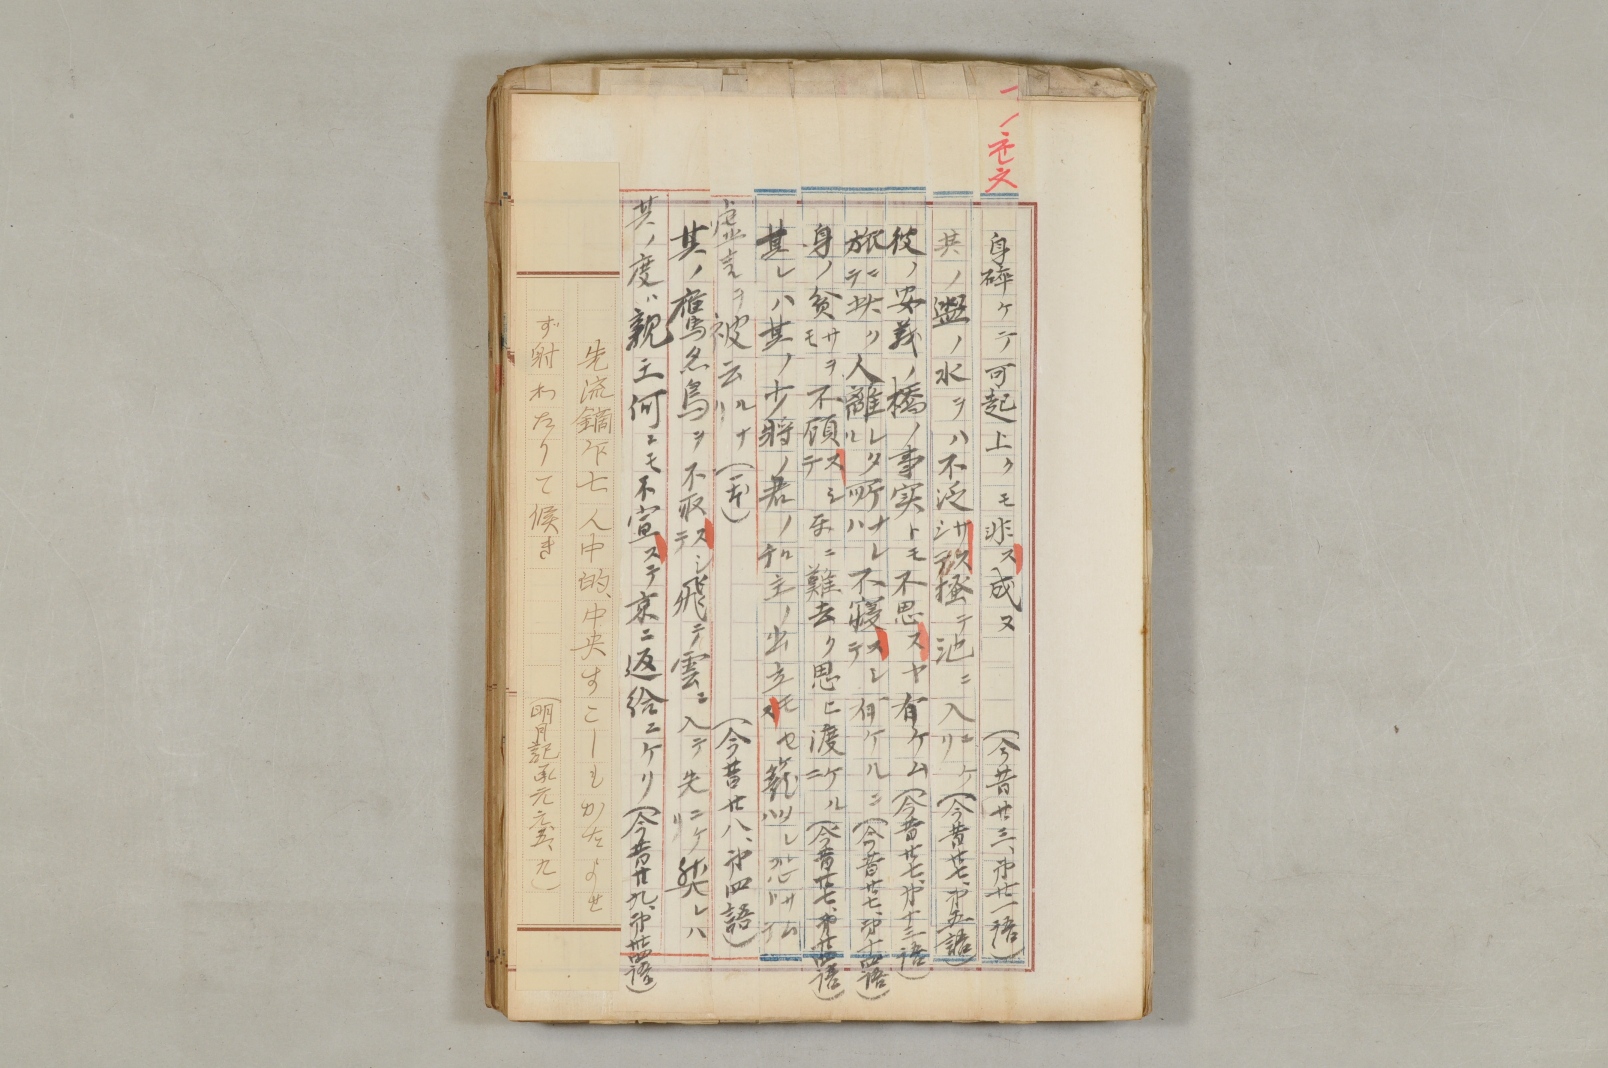 身碎ケテ可起上クモ非ス成ヌ (今昔廿三、第廿一語)
其ノ盥ノ水ヲハ不泛サシテ掻テ池ニ入ニケリ(今昔廿七、第五語)
彼ノ安義ノ橋ノ事実トモ不思スヤ有ケム(今昔廿七、第十三語)
旅ニテ此ク人離レタル所ナレハ不寝スシテ有ケルニ(今昔廿七、第十四語)
身ノ貧サヲモ不顧スシテ難去ク思ヒ渡ケルニ(今昔廿七、第廿四語)
其レハ其ノ少将ノ君ノ主ノ出立モセ
虚言ヲ被云ルナリ(一本) (今昔廿八、第四語)
其ノ鷹鳥ヲ不取スシテ飛テ雲ニ入テ失ニケリ然レハ
其ノ度ハ親王何ニモ不宣ステ京ニ返給ニケリ(今昔廿九、第卅四語)
先流鏑以下七人中的、中央すこしもかたよせ
ず射わたりて候き (明月記承元元、五、九)